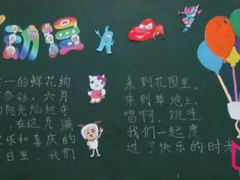 动漫
一的鲜花绚
多彩，六月
阳光灿烂
在这充满
乐和喜庆的
日里，我们
来到花园里，
来到草地上，
唱啊，跳
我们一起度
过了快乐的时光